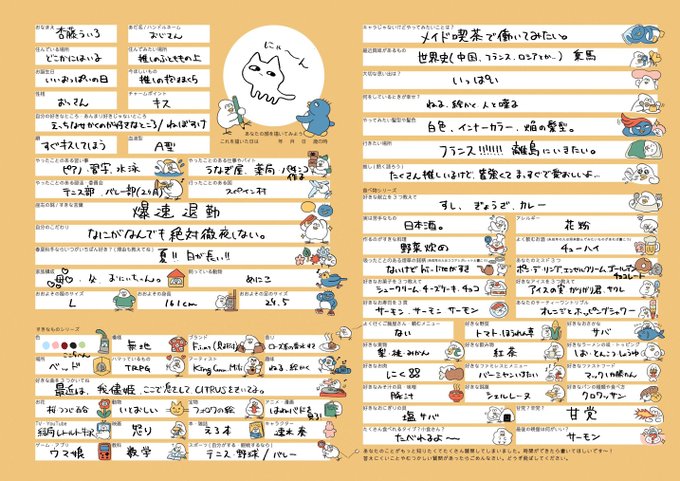 おなまえ
杏藤ういろ
あだ名 / ハンドルネーム
おじさん
住んでいる場所
どこかにはいる
住んでみたい場所
推しのふとももの上
お誕生日
いいおっぱいの日
今ほしいもの
推しの抱きまくら
性格
おっさん
チャームポイント
キス
自分の好きなところ・あんまり好きじゃないところ
すぐキスしてしまう
血液型
A型
にゃーん
あなたの顔を描いてみよう
これを描いた日は 年 月 日 歳の時
やったことのある習い事
ピアノ、習字、水泳
やったことのある仕事やバイト
うなぎ屋、薬局
やったことのある部活・委員会
行ったことのある国
スペイン村
座右の銘 / すきな言葉
爆速退勤
自分のこだわり
なにがなんでも絶対徹夜しない。
夏!! 日が長い!!
家族構成
飼っている動物
めにこ
おおよその服のサイズ
L
おおよその身長
161cm
おおよその足のサイズ
24.5
すきなものシリーズ
色
模様
無地
ブランド
香り
場所
ベッド
ハマっているもの
TRPG
アーティスト
King Gnu. Mili
趣味
ねる、絵かく
お花
動物
いとおしい
宝物
フォロワの絵
アニメ・漫画
TV・YouTube
映画
怒り
本・雑誌
えろ本
キャラクター
速水奏
ゲーム・アプリ
ウマ娘
教科
数学
テニス・野球 / バレー
キャラじゃないけどやってみたいことは？
メイド喫茶で働いてみたい。
最近興味があるもの
世界史(中国、フランス、ロシアとか…) 乗馬
大切な思い出は？
いっぱい
何をしているときが幸せ？
ねる、絵かく、人と喋る
やってみたい髪型や髪色
白色、インナーカラー、姫の髪型。
行きたい場所
フランス!!!!!!! 離島にいきたい。
推し！(熱く語ろう)
たくさん推しいるけど、皆強くてま、すぐで愛おしいよ…
食べ物シリーズ
好きな献立を3つ教えて
すし、ぎょうざ、カレー
実は苦手なもの
日本酒。
アレルギー
花粉
作るのがすきな料理
野菜炒め
よく飲むお酒
チューハイ
あなたのミスド3つ
ポン・デ・リング、エンゼルクリーム、ゴールデンチョコレート
好きなお菓子を3つ教えて
シュークリーム、チーズケーキ、チョコ
好きなアイスを3つ教えて
アイスの実、ガリガリ君、サクレ
好きなお寿司を3貫
サーモン、サーモン、サーモン
あなたのサーティーワントリプル
オレンジとホッピングシャワー
よく行くご飯屋さん・頼むメニュー
ない
好きな野菜
トマト、ほうれん草
好きなお魚
サバ
好きな果物
梨・桃・みかん
好きな飲み物
紅茶
好きなラーメンの味・トッピング
しお・とんこつ・しょうゆ
好きなお肉
にく
好きなファミレスとメニュー
バーミヤンいきたい
好きなファストフード
マックしか勝たん
好きなお味噌汁の具・味噌
豚汁
好きな麺
シェルレーヌ
好きなパンの種類や食べ方
クロワッサン
好きなおにぎりの具
塩サバ
甘党？辛党？
甘党
たくさん食べれるタイプ？小食さん？
たべれるよ〜
最後の晩餐は何がいい？
サーモン
あなたのことがもっと知りたくてたくさん質問してしまいました。時間ができたら書いてほしいです〜！
答えにくいことやむつかしい質問があったらごめんなさい。どうぞ飛ばしてください。